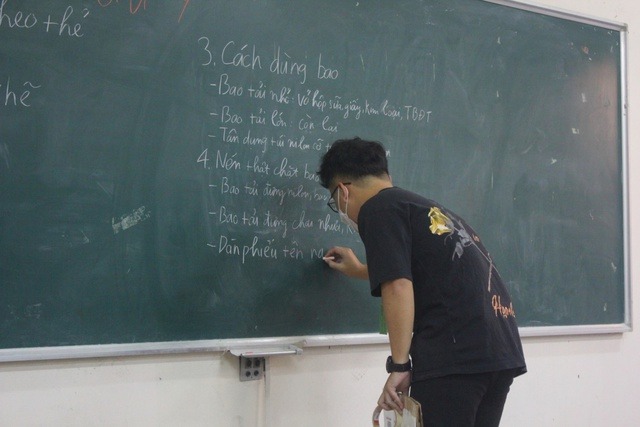 heo + hề
hễ
3. Cách dùng bao
- Bao tải nhỏ: Vỏ hộp sữa, giấy, kim loại, TBĐT
- Bao tải lớn: còn lại
- Tận dụng túi nilm cỡ
4. Nén thật chặt bao
- Bao tải đựng nilm,
- Bao tải đựng chai nhựa,
- Dán phiếu tên